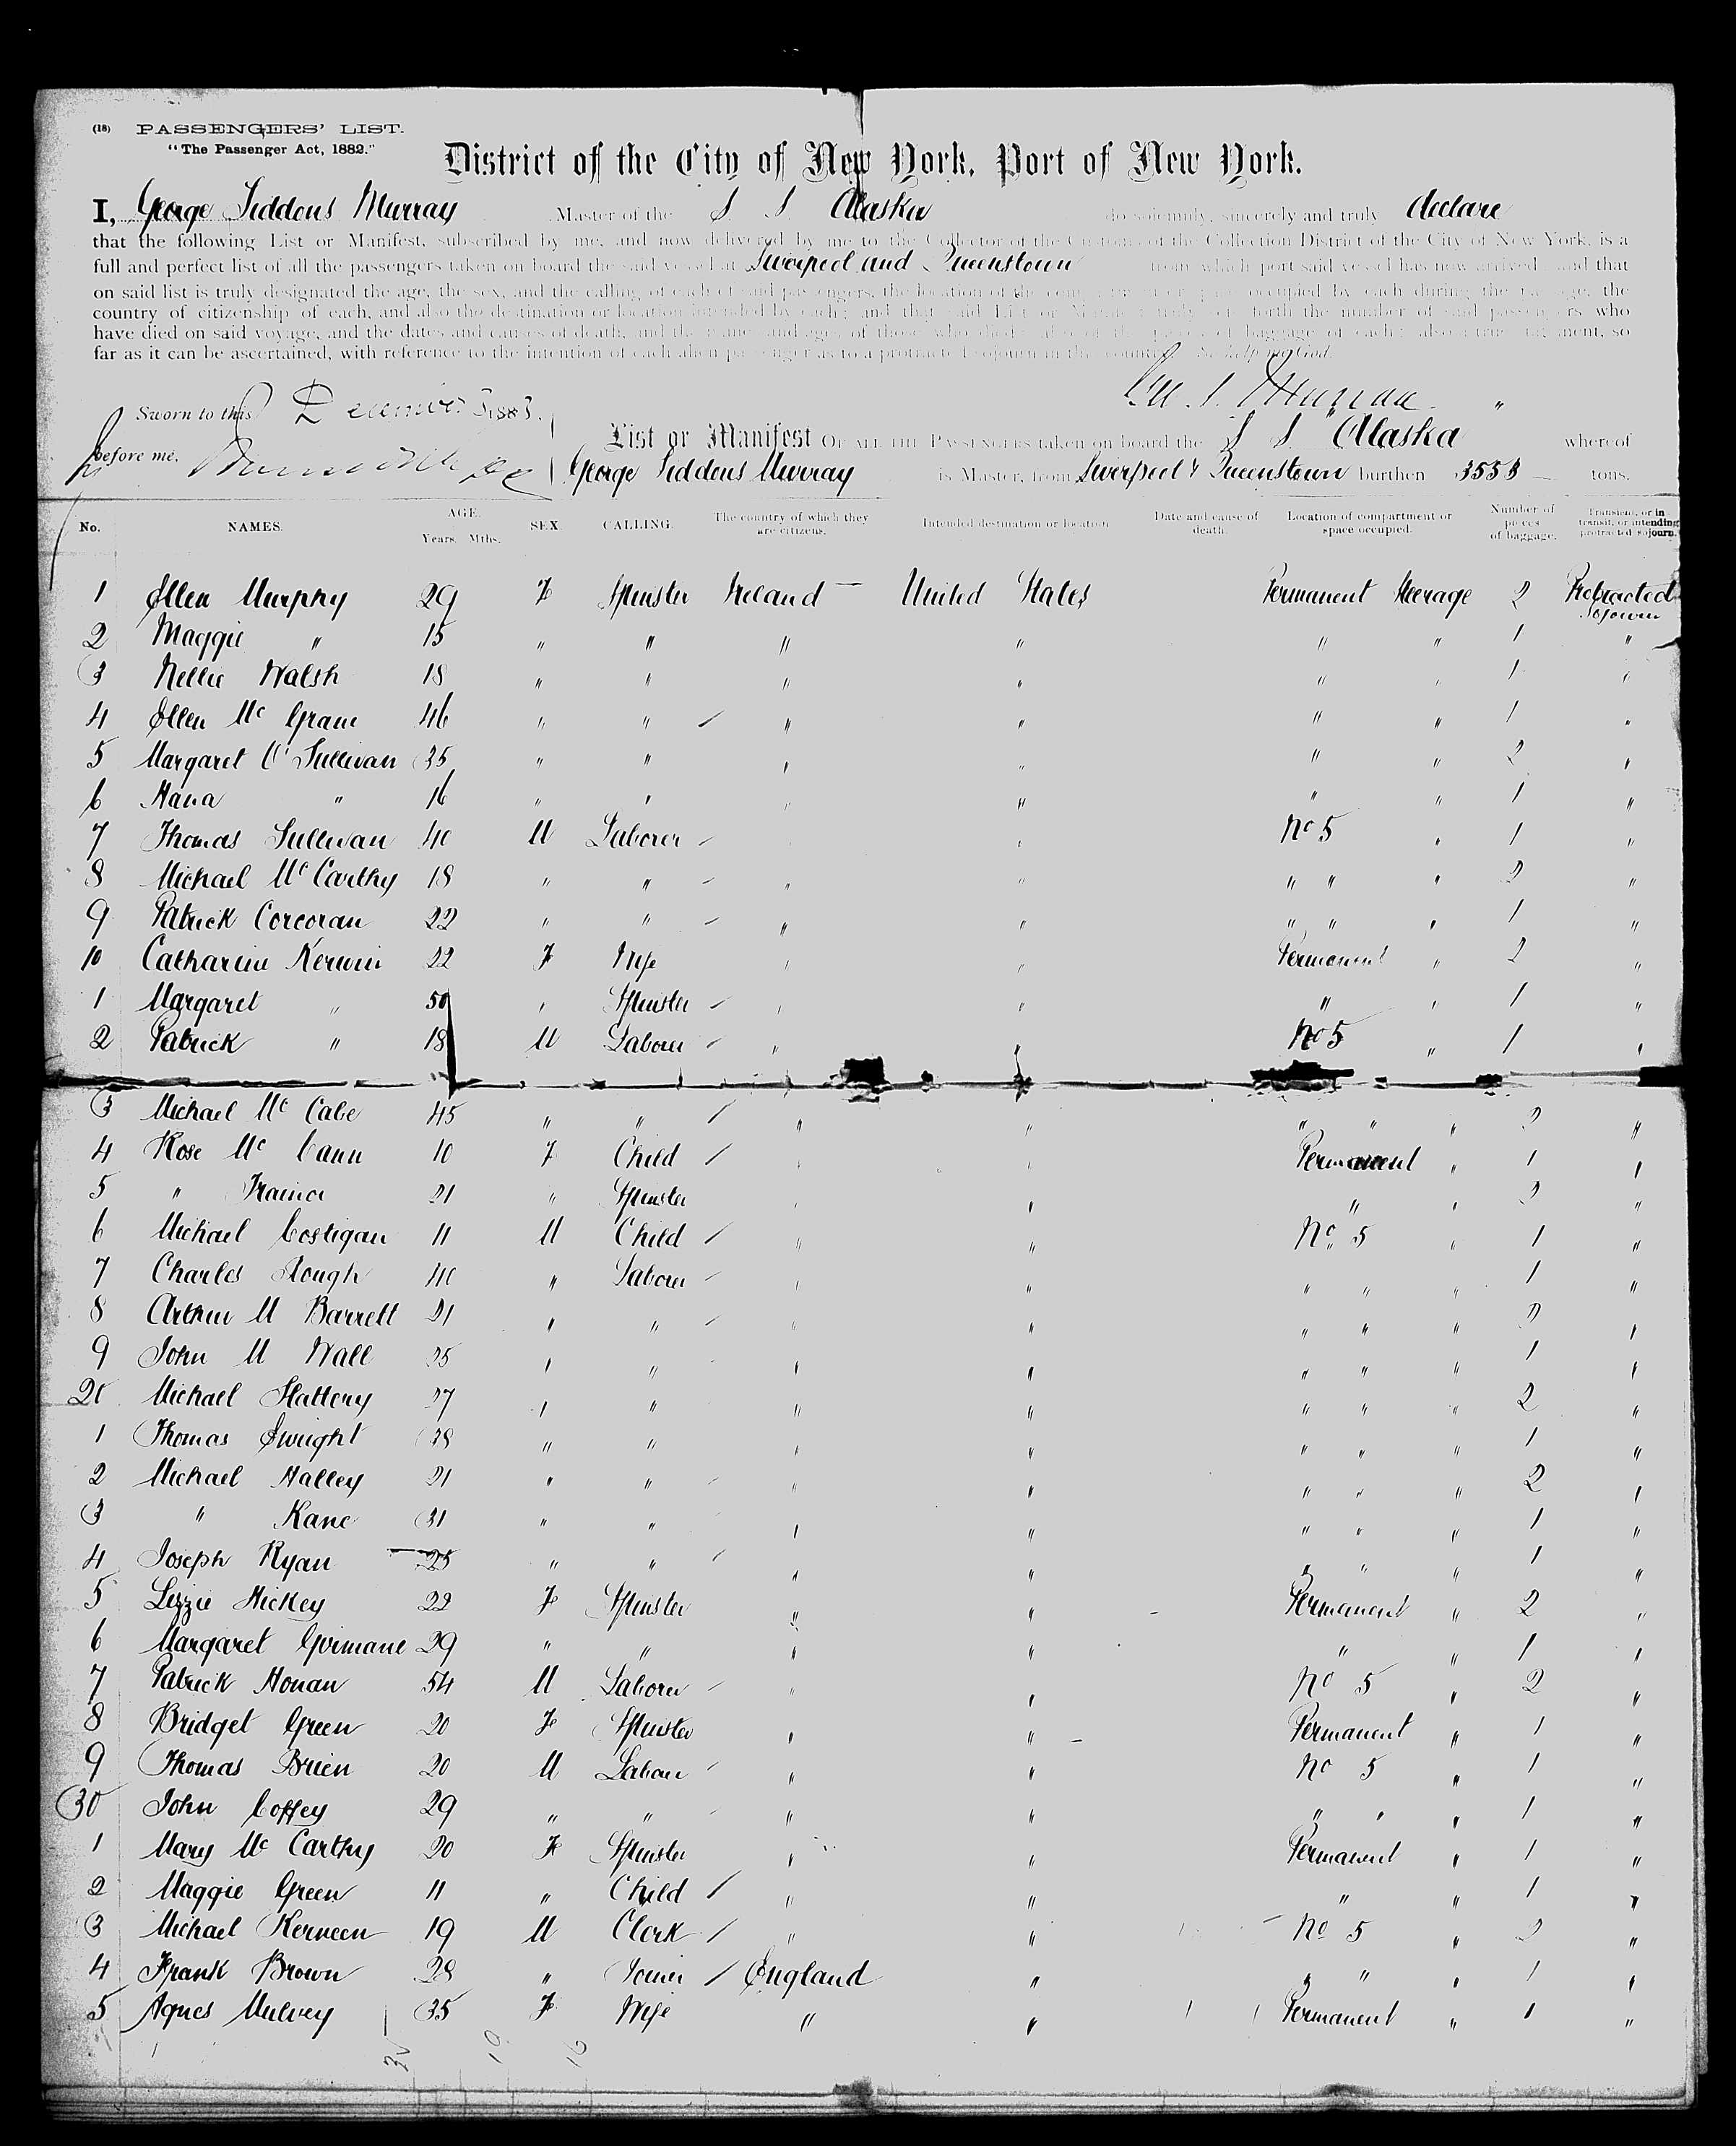 (18) PASSENGERS' LIST.
"The Passenger Act, 1882."
District of the City of New York, Port of New York.
I, George Siddons Murray Master of the S. S. Alaska do solemnly, sincerely and truly declare
that the following List or Manifest, subscribed by me, and now delivered by me to the Collector of the Customs of the Collection District of the City of New York, is a
full and perfect list of all the passengers taken on board the said vessel at Liverpool and Queenstown from which port said vessel has now arrived; and that
on said list is truly designated the age, the sex, and the calling of each of said passengers, the location of the compartment or space occupied by each during the passage, the
country of citizenship of each, and also the destination or location intended by each; and that said List or Manifest truly sets forth the number of said passengers who
have died on said voyage, and the dates and causes of death, and the names and ages of those who died; also of the pieces of baggage of each; also a true statement, so
far as it can be ascertained, with reference to the intention of each alien passenger as to a protracted sojourn in this country. So help me God.
Geo. S. Murray
Sworn to this December 1883.
List or Manifest OF ALL THE PASSENGERS taken on board the S. S. "Alaska" whereof
before me,
George Siddons Murray is Master, from Liverpool & Queenstown burthen 3553 tons.
No. NAMES. AGE. Years. Mths. SEX. CALLING. The country of which they are citizens. Intended destination or location Date and cause of death. Location of compartment or space occupied. Number of pieces of baggage. Transient, or in transit, or intending protracted sojourn.
1 Ellen Murphy 29 F Spinster Ireland — United States Permanent Steerage 2 Protracted Sojourn
2 Maggie " 15 " " " " " " 1 "
3 Nellie Walsh 18 " " " " " " 1 "
4 Ellen Mc Grane 46 " " " " " " 1 "
5 Margaret O'Sullivan 35 " " " " " " 2 "
6 Hana " 16 " " " " " " 1 "
7 Thomas Sullivan 40 M Laborer " No 5 " 1 "
8 Michael McCarthy 18 " " " " " " " 2 "
9 Patrick Corcoran 22 " " " " " " " 1 "
10 Catharine Kerwin 22 F Wife " " Permanent " 2 "
1 Margaret " 50 " Spinster " " " " 1 "
2 Patrick " 18 M Laborer " " No 5 " 1 "
3 Michael Mc Cabe 45 " " " " " " " 2 "
4 Rose Mc Cann 10 F Child " " Permanent " 1 "
5 " Trainor 21 " Spinster " " " " 2 "
6 Michael Costigan 11 M Child " " No 5 " 1 "
7 Charles Rough 40 " Laborer " " " " " 1 "
8 Arthur M Barrett 21 " " " " " " " 2 "
9 John M Wall 25 " " " " " " " 1 "
20 Michael Slattery 27 " " " " " " " 2 "
1 Thomas Enright 38 " " " " " " " 1 "
2 Michael Halley 21 " " " " " " " 2 "
3 " Kane 31 " " " " " " " 1 "
4 Joseph Ryan 25 " " " " " " " 1 "
5 Lizzie Hickey 22 F Spinster " " Permanent " 2 "
6 Margaret Gormane 29 " " " " " " 1 "
7 Patrick Honan 54 M Laborer " " No 5 " 2 "
8 Bridget Green 20 F Spinster " " Permanent " 1 "
9 Thomas Brien 20 M Laborer " " No 5 " 1 "
30 John Coffey 29 " " " " " " " 1 "
1 Mary Mc Carthy 20 F Spinster " " Permanent " 1 "
2 Maggie Green 11 " Child " " " " 1 "
3 Michael Kerneen 19 M Clerk " " No 5 " 2 "
4 Frank Brown 28 " Joiner England " " " " 1 "
5 Agnes Mulvey 35 F Wife " " Permanent " 1 "